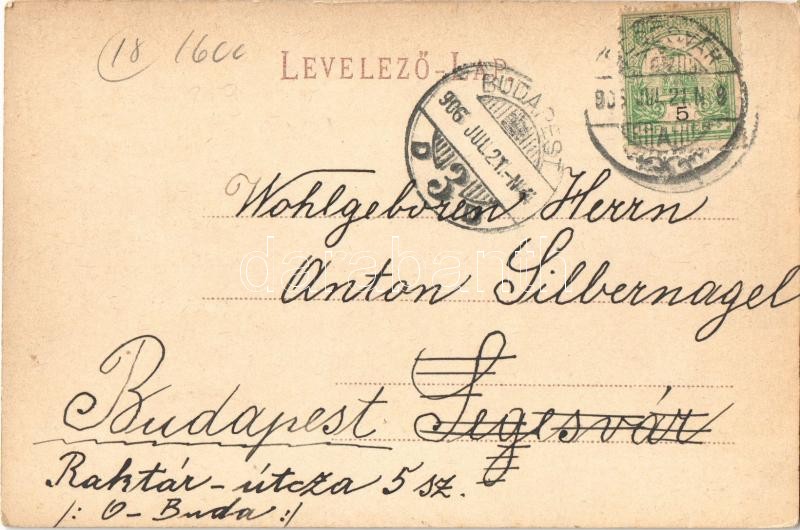 18 1600
LEVELEZŐ-LAP
BUDAPEST
906 JUL.21.-N
D
3
5
Wohlgeboren Herrn
Anton Silbernagel
Budapest Segesvár
Raktár-útcza 5 sz.
/: O-Buda :/
darabanth